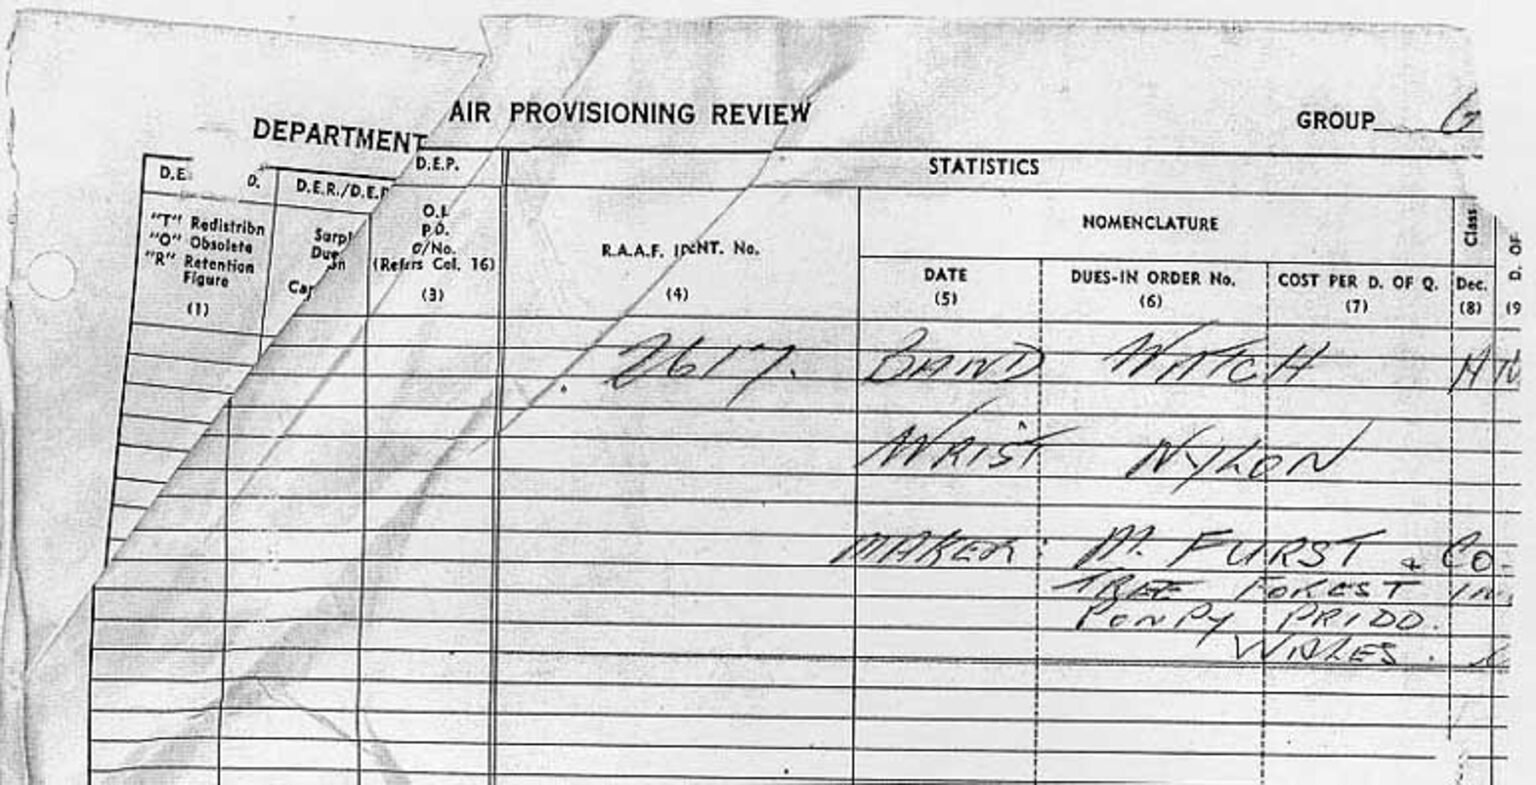 DEPARTMENT AIR PROVISIONING REVIEW
GROUP
D.E. D.
D.E.R./D.E.P
D.E.P.
STATISTICS
"T" Redistribn
"O" Obsolete
"R" Retention
Figure
(1)
Surpl
Due
O.I.
P.D.
O/No.
(Refers Col. 16)
(3)
R.A.A.F. IDENT. No.
(4)
NOMENCLATURE
DATE
(5)
DUES-IN ORDER No.
(6)
COST PER D. OF Q.
(7)
Class
Dec.
(8)
D. OF
(9
2617. BAND WATCH
WRIST NYLON
MAKER: M. FURST & CO.
TREE FOREST IN
PONPY PRIDD.
WALES.